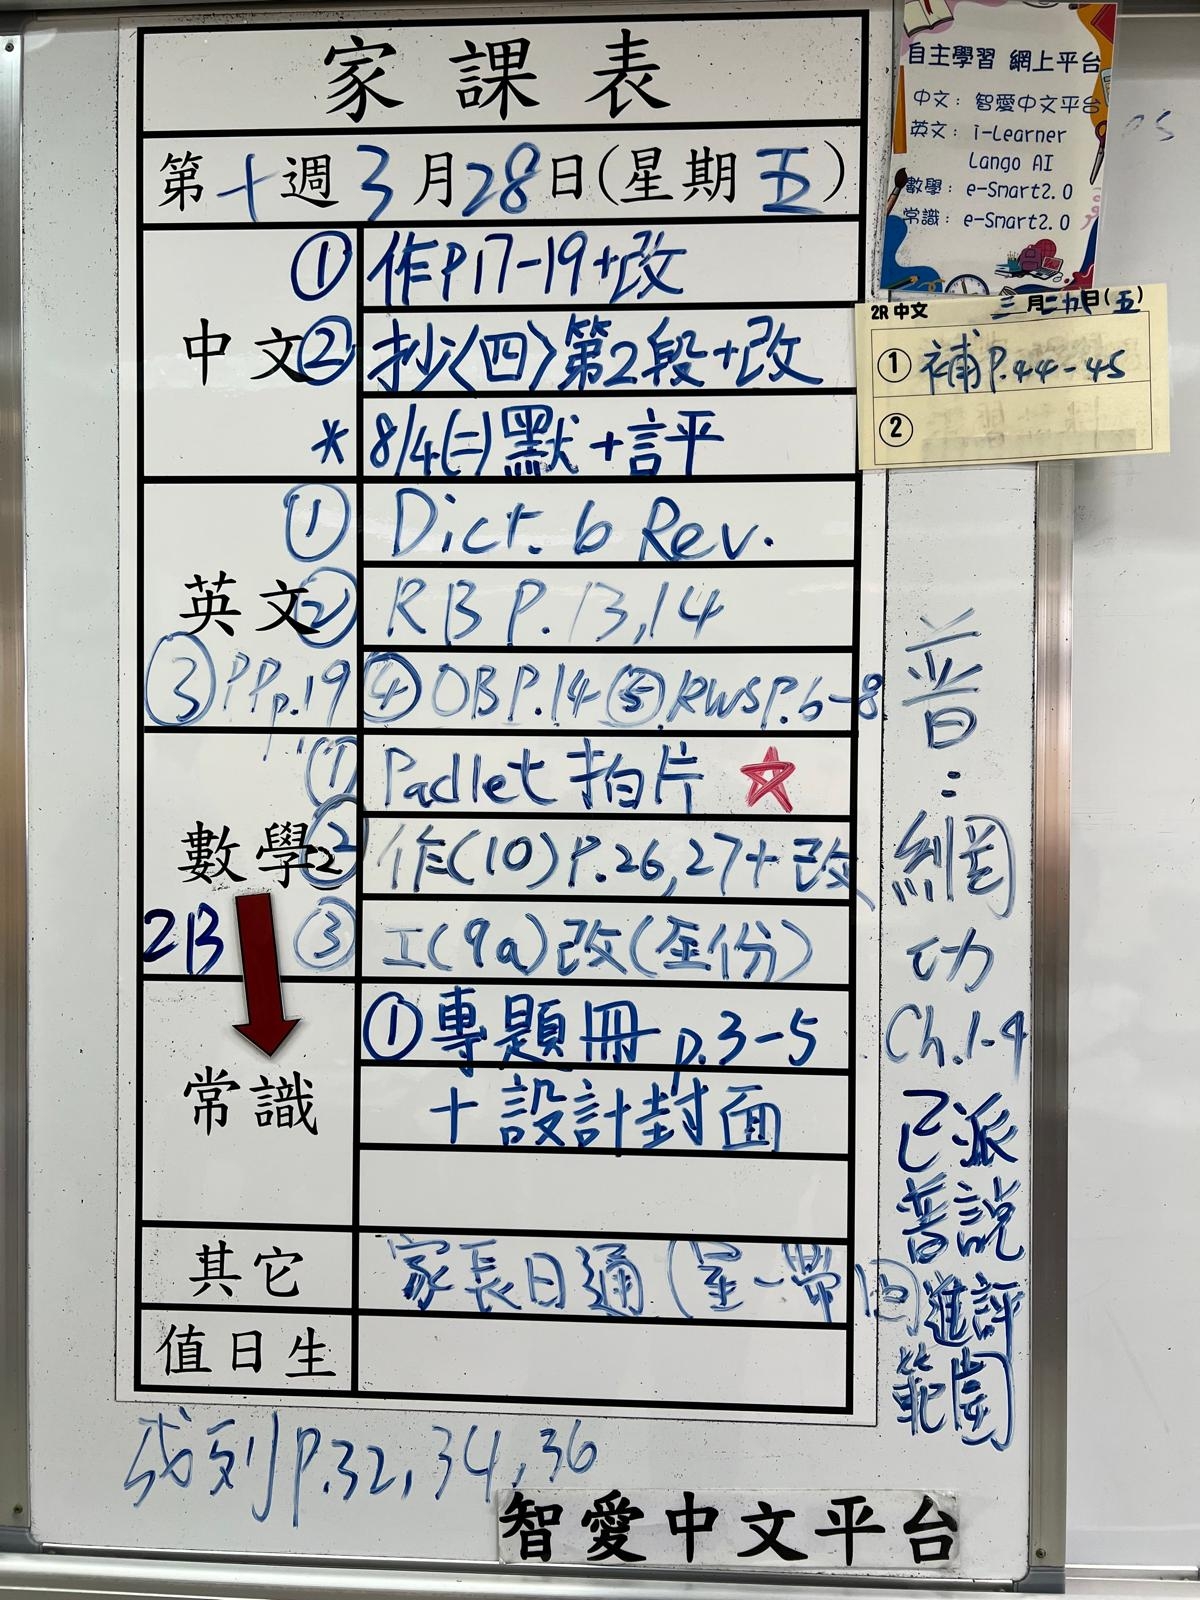 家課表
第十週3月28日(星期五)
中文
① 作P.17-19+改
② 抄〈四〉第2段+改
* 8/4(二)默+評
英文
① Dict. 6 Rev.
② RB P.13,14
③ PP p.19 ④ OB P.14 ⑤ RWS P.6-8
數學
① Padlet 拍片 ☆
② 作(10) P.26,27+改
2B ③ 工(9a)改(全份)
常識
① 專題冊 p.3-5
+ 設計封面
其它
家長日通(星一帶回)
值日生
P.32,34,36
智愛中文平台
自主學習 網上平台
中文：智愛中文平台
英文：i-Learner
Lango AI
數學：e-Smart2.0
常識：e-Smart2.0
2R 中文 三月二九日(五)
① 補P.44-45
②
普：網
功
Ch.1-4
已派
普說
進評
範圍